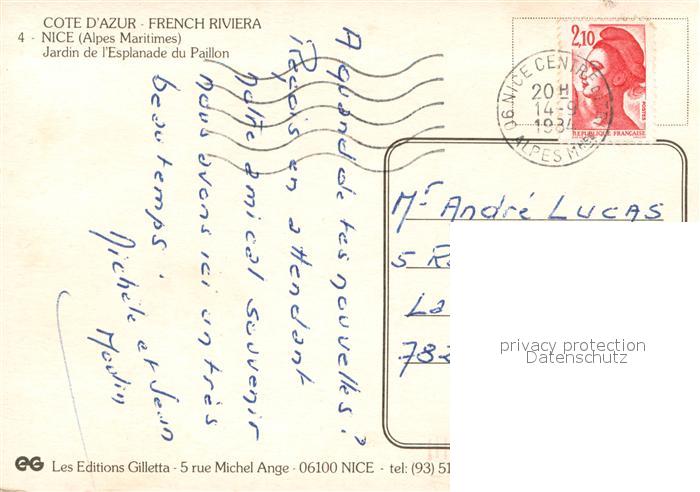 COTE D'AZUR - FRENCH RIVIERA
4 - NICE (Alpes Maritimes)
Jardin de l'Esplanade du Paillon
A quand de tes nouvelles?
Reçois en attendant
notre amical souvenir
nous avons ici un très
beau temps.
Michèle et Jean
Modin
2,10
POSTES
REPUBLIQUE FRANÇAISE
06 NICE CENTRE
20H
14-9
1984
ALPES MMES
Mr André LUCAS
5 R
La
78
privacy protection
Datenschutz
EG Les Editions Gilletta - 5 rue Michel Ange - 06100 NICE - tel: (93) 51